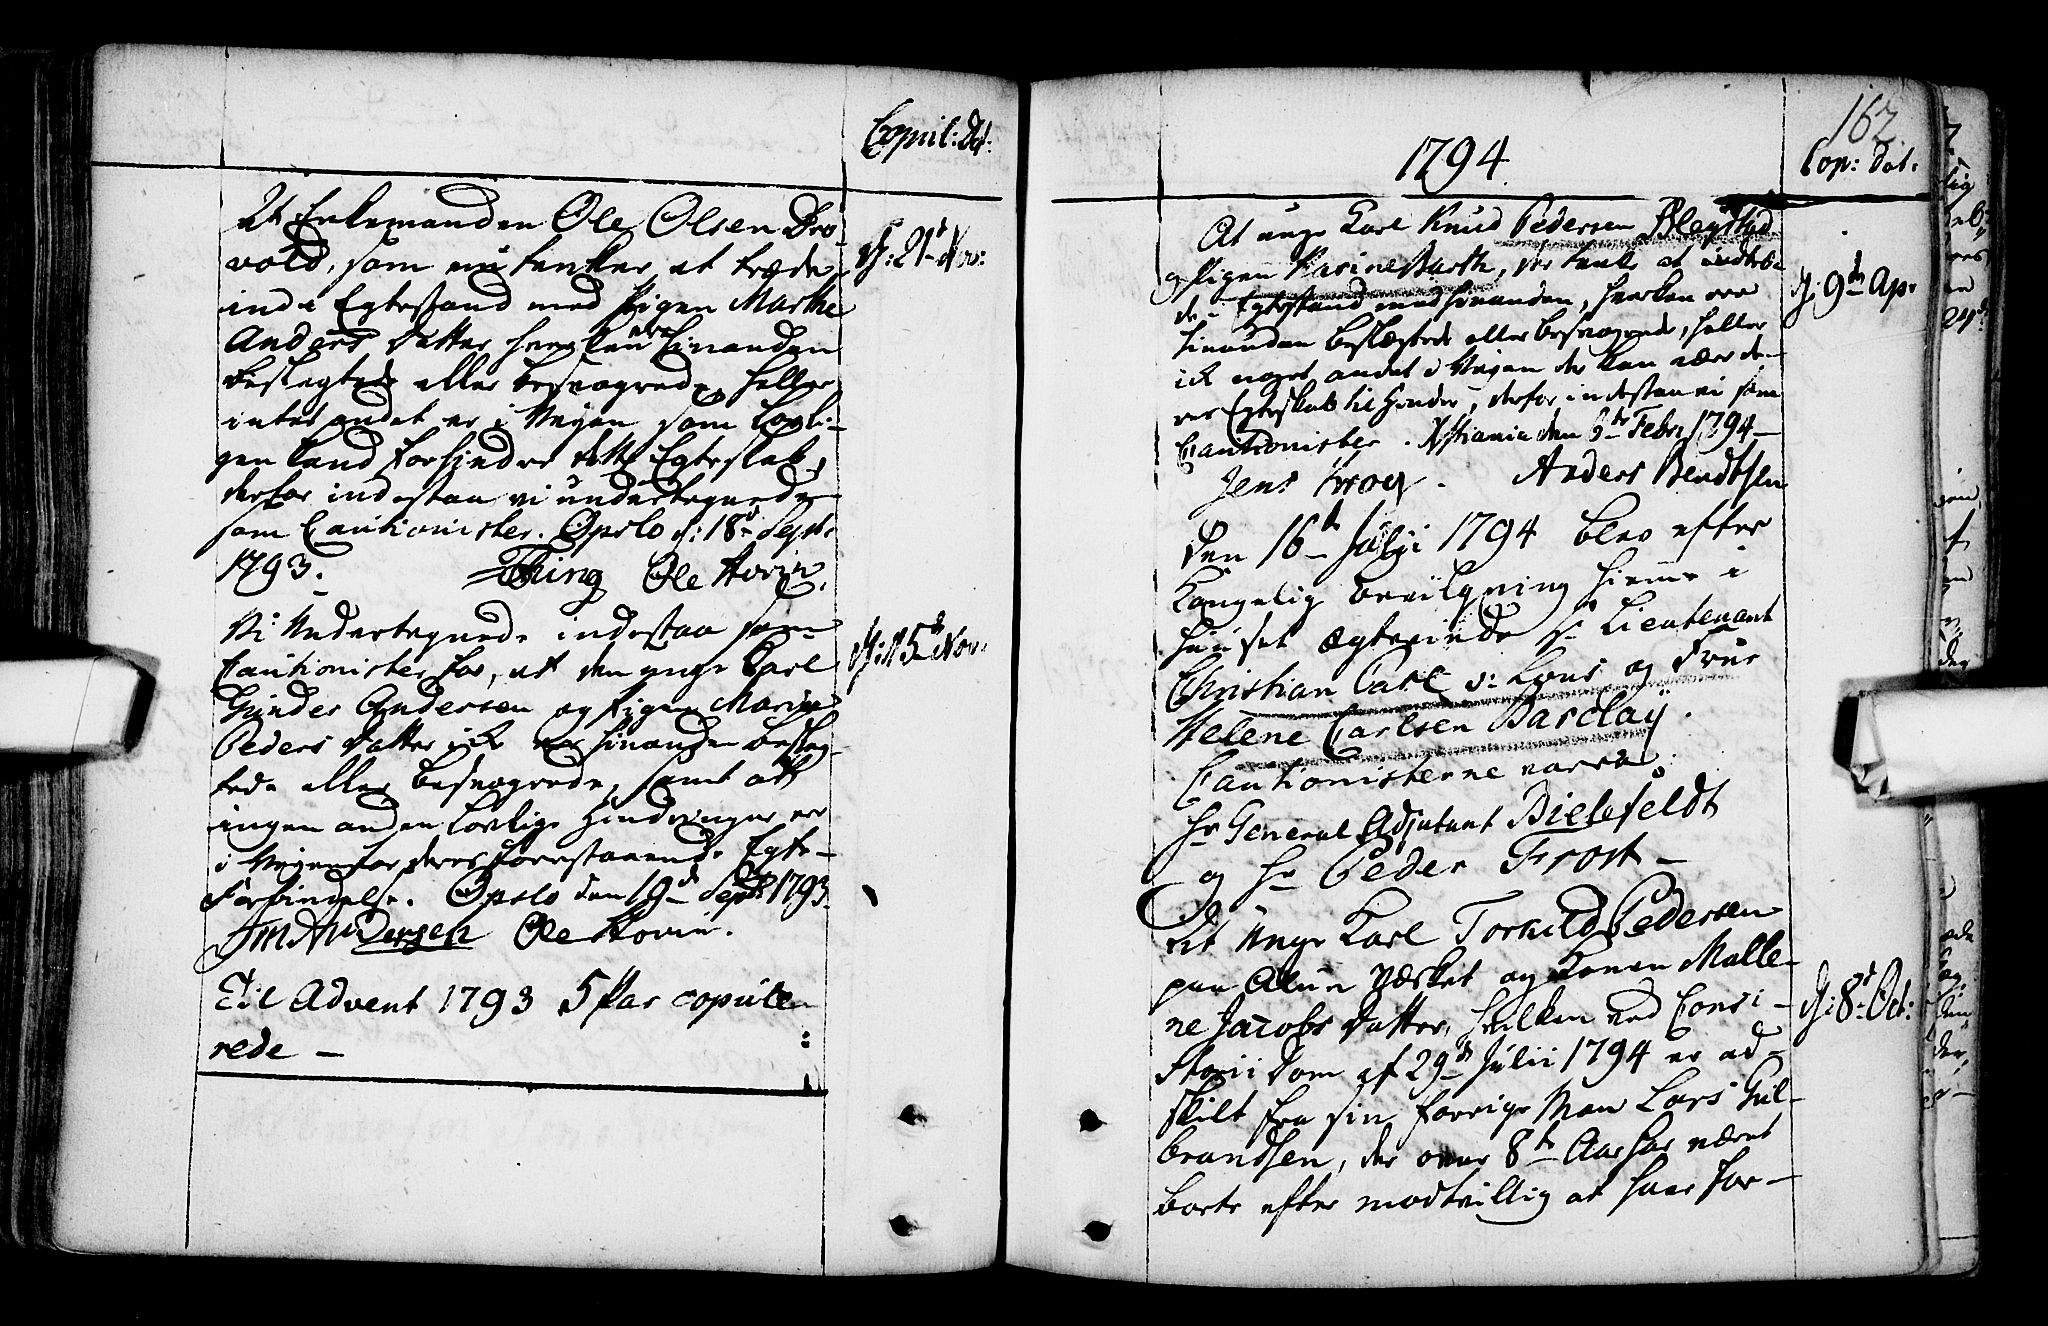 Copul: Dat:
At Enkemanden Ole Olsen Bro-
vold, som nu tenker at træde
ind i Egtestand med Pigen Marthe
Anders Datter hverken ere hinanden
beslegtede eller besvogrede, heller
intet andet er i Veyen som Lovli-
gen kand forhindre dette Egteskab,
derfor indestaa vi undertegnede
som Cautionister. Opslo d: 18de Septr
1793. Thing Ole Hovin.
d: 21de Nov:
Vi Undertegnede indestaa som
Cautionister for, at den unge Carl
Gunder Andersen og Pigen Marie
Peders Datter ick er hinanden besleg-
tede eller besvogrede, samt at
ingen anden Lovlige Hindringer er
i Veyen for deres forestaaende Egte-
Forbindelse. Opslo den 19de Septr 1793.
Jm Andersen Ole Hovin.
d: 15de Nov:
Til Advent 1793 5 Par copule-
rede –
162
1794
Cop: Dat:
At unge Karl Knud Pedersen Bleystad
og Pigen Karine Barth, der tenke at indtræ-
de i Egtestand med hinanden, hverken ere
hinanden beslægtede eller besvogrede, heller
ick noget andet i Veyen der kan være de-
res Egteskab til Hinder, derfor indestaa vi som
Cautionister. Xstiania den 6te Febr 1794 –
Jens Krog. Anders Bendtsen
d: 9de Ap:
Den 16de Julji 1794 blev efter
Kongelig bevilgning hiemme i
Huuset ægteviede Hr Lieutenant
Christian Carl v: Lous og Frue
Helene Carlsen Barclay.
Cautionisterne vare:
Hr General Adjutant Bielefeldt
og Hr Peder Frost –
At Unge Karl Torkild Pedersen
paa Alun Værket og Konen Malle-
ne Jacobs Datter, hvilken ved Consi-
storii Dom af 29de Julii 1794 er ad-
skilt fra sin forrige Man Lars Gul-
brandsen, der over 8te Aar har været
borte efter modtvillig at have for-
d: 8de Oct: